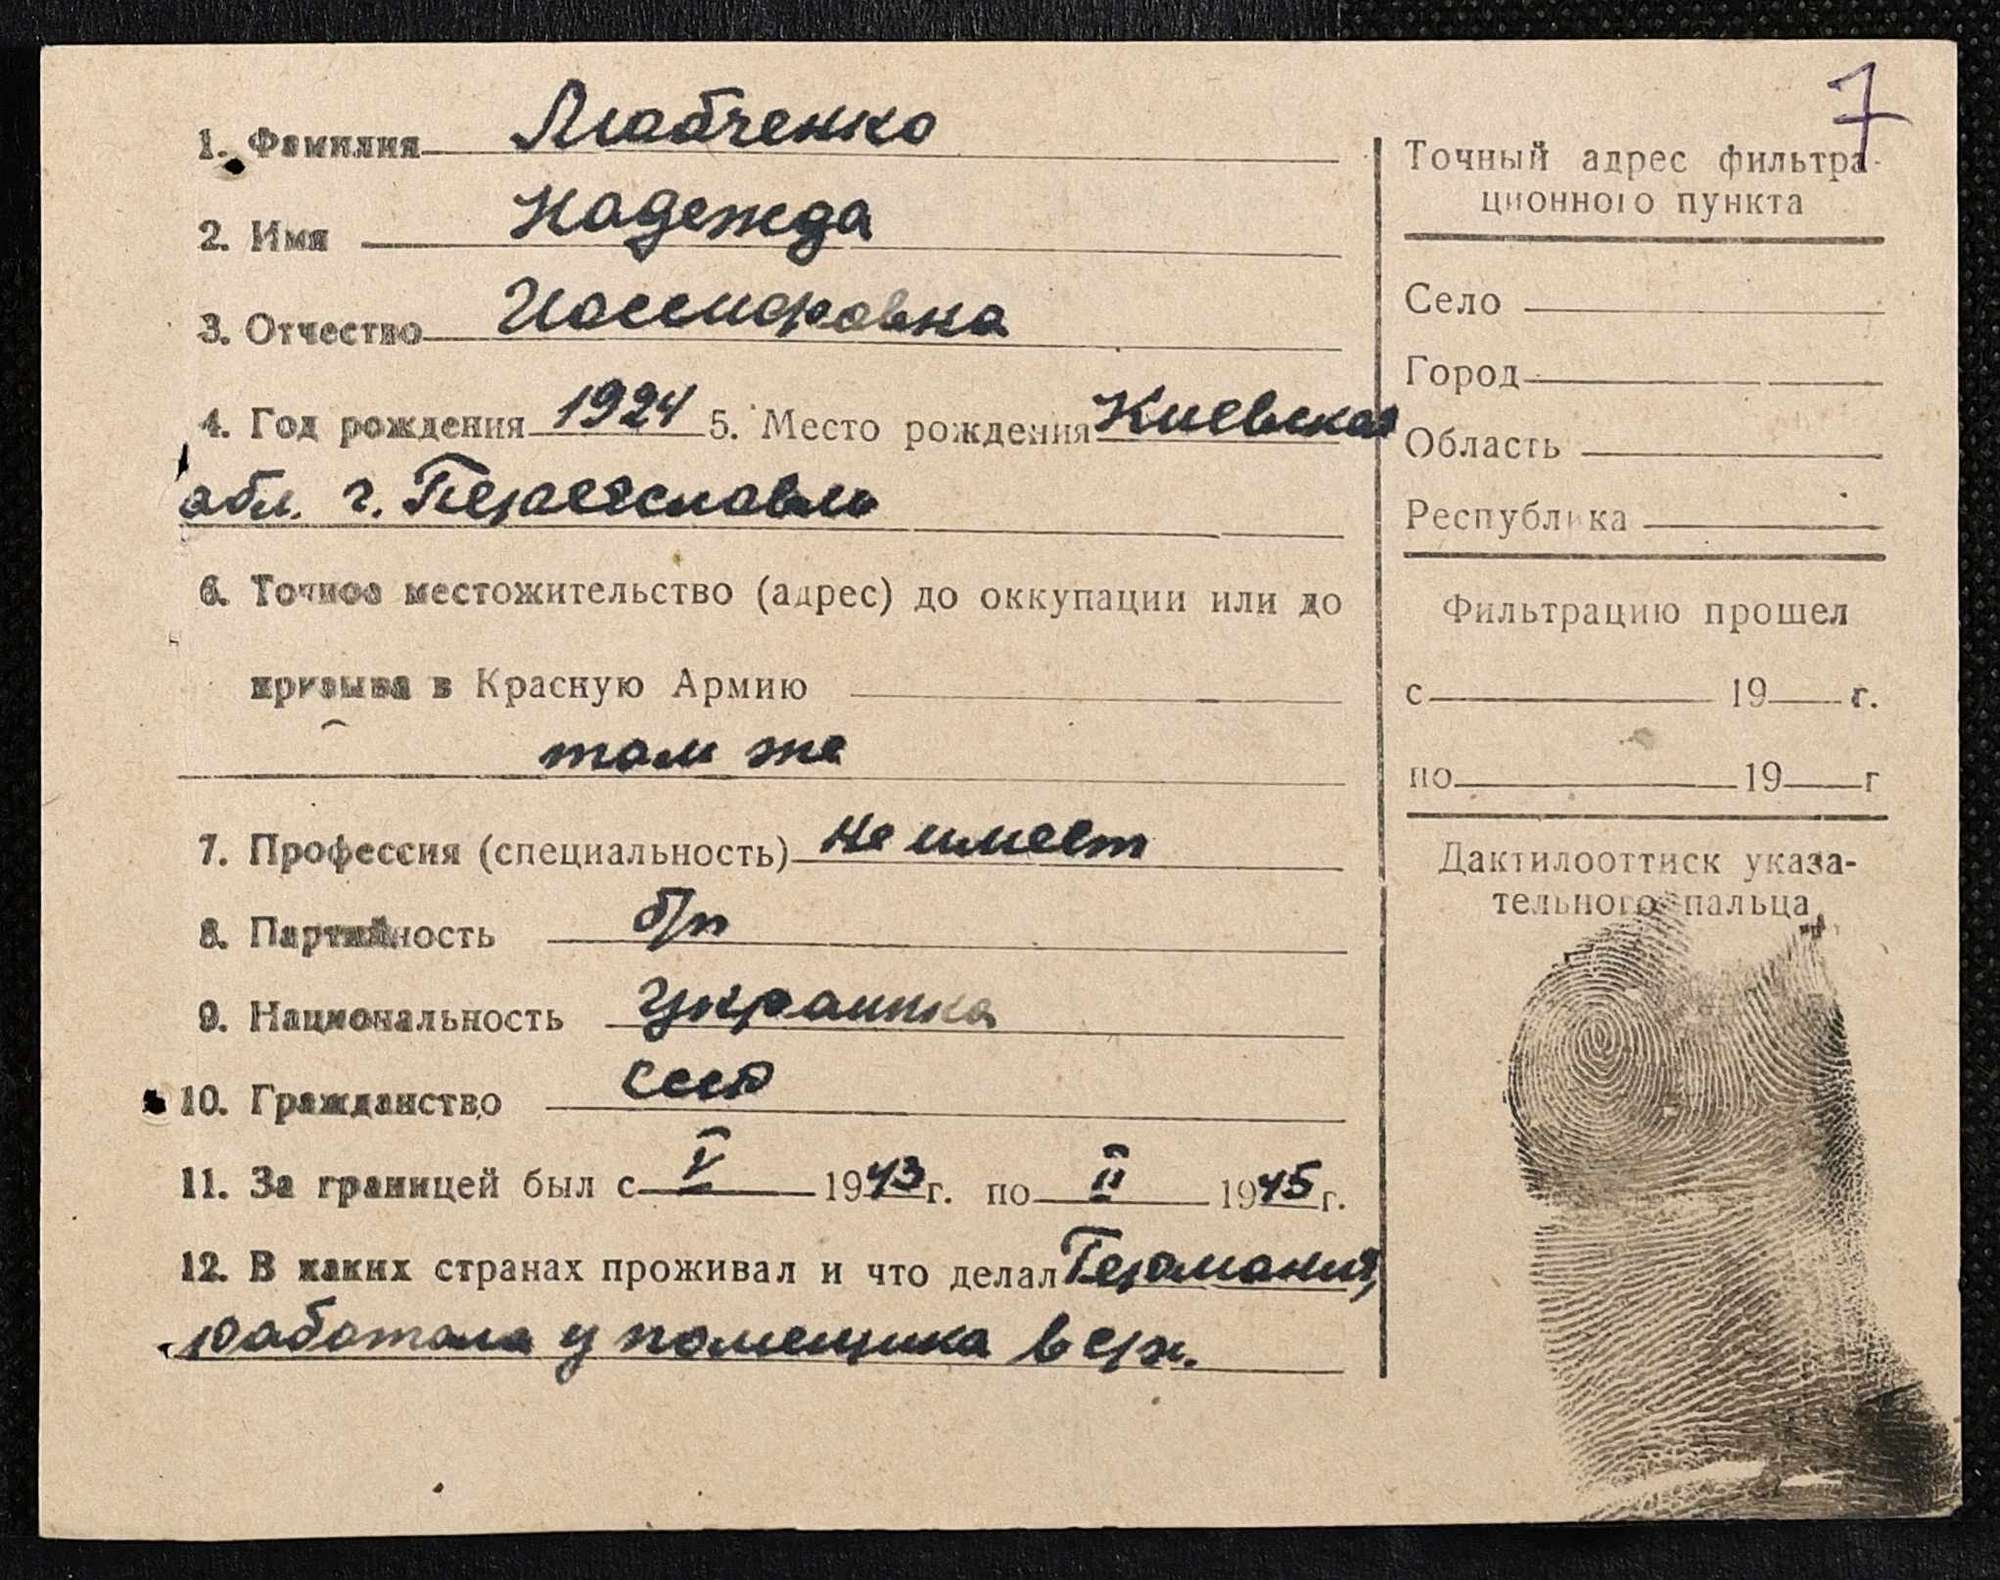 1. Фамилия Лиабченко
2. Имя Надежда
3. Отчество Иосифовна
4. Год рождения 1924 5. Место рождения Киевская
обл. г. Переяславль
6. Точное местожительство (адрес) до оккупации или до
призыва в Красную Армию
там же
7. Профессия (специальность) не имеет
8. Партийность б/п
9. Национальность украинка
10. Гражданство ссср
11. За границей был с V 1943 г. по II 1945 г.
12. В каких странах проживал и что делал Германия,
работала у помещика в
7
Точный адрес фильтра-
ционного пункта
Село
Город
Область
Республика
Фильтрацию прошел
с 19 г.
по 19 г
Дактилооттиск указа-
тельного пальца